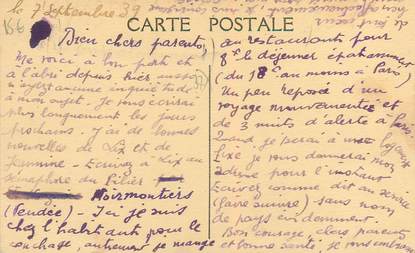 le 7 Septembre 39
CARTE POSTALE
Bien chers parents,
Me voici à bon port et
à l'abri depuis hier aussi
n'ayez aucune inquiétude
à mon sujet. Je vous écrirai
plus longuement les jours
prochains. J'ai de bonnes
nouvelles de Lix et de
Jeannine - Ecrivez à Lix au
sémaphore du Pilier
Noirmoutiers
(Vendée) - Ici je suis
chez l'habitant pour le
couchage, autrement je mange
au restaurant pour
8f le déjeuner épatamment
(du 18f au moins à Paris)
Un peu reposé d'un
voyage mouvementé et
de 3 nuits d'alerte à Paris
Quand je serai à
fixe je vous donnerai mon
adresse pour l'instant
Ecrivez comme dit au service
(faire suivre) sans nom
de pays évidemment.
Bon courage, chers parents
et bonne santé, je vous embrasse
de tout coeur